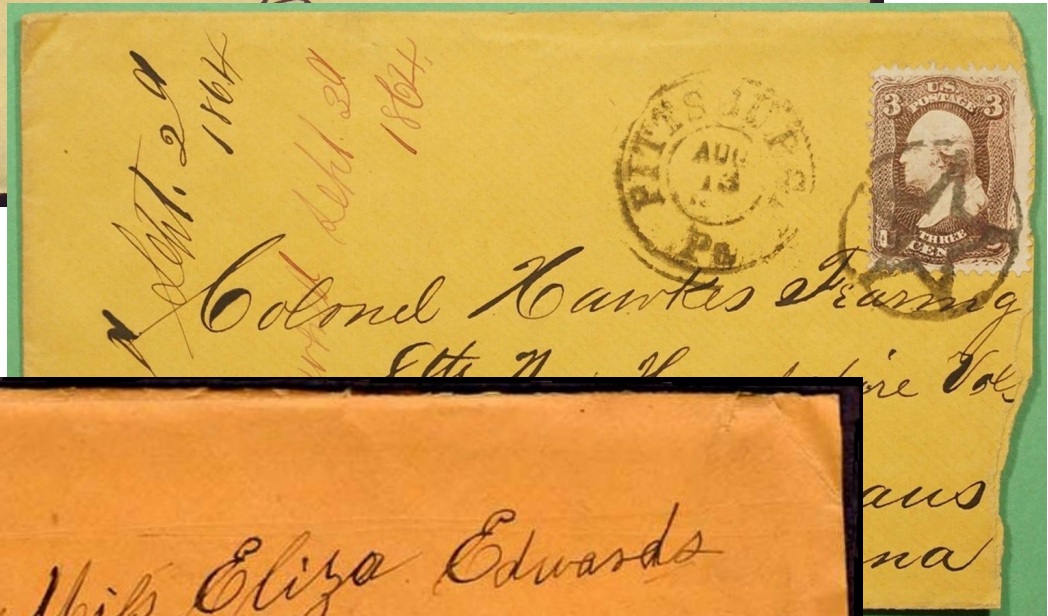 Sept. 2d
1864
Sept. 3d
1864.
PITTSBURG
AUG
13
Pa.
U.S.
POSTAGE
3 3
THREE
CEN
Colonel Hawkes Fearing
8th N
Vol.
Miss Eliza Edwards